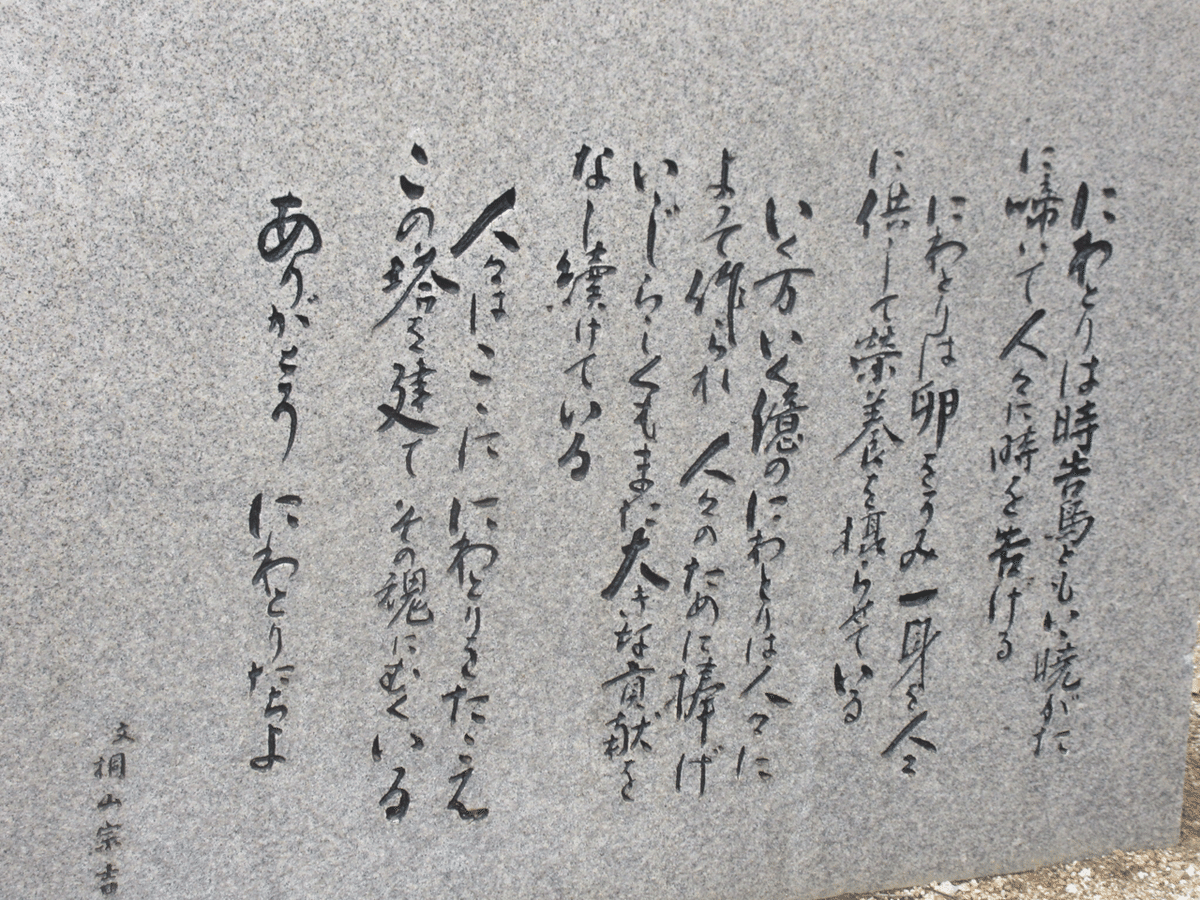 にわとりは時告鳥ともいい暁がた
に啼いて人々に時を告げる
にわとりは卵をうみ一身を人々
に供して榮養を摂らせている
いく万いく億のにわとりは人々に
よって作られ 人々のために捧げ
いじらしくもまた大きな貢献を
なし續けている
人々はここに にわとりをたたえ
この塔を建て その魂にむくいる
ありがとう にわとりたちよ
文 桐山宗吉